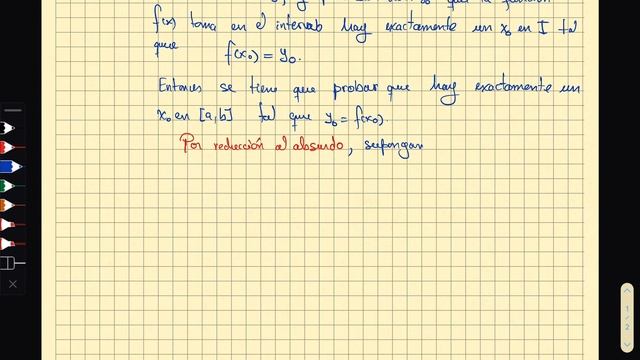 f(x) toma en el intervalo hay exactamente un x₀ en I tal
que f(x₀) = y₀.
Entonces se tiene que probar que hay exactamente un
x₀ en [a,b] tal que y₀ = f(x₀).
Por reducción al absurdo, supongam
1
/
2